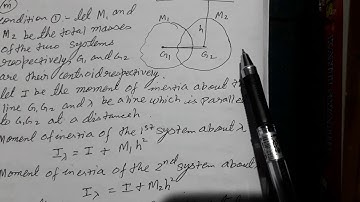 condition ① - let M₁ and
M₂ be the total masses
of the two systems
respectively. G₁ and G₂
are their centroid respectively.
let I be the moment of inertia about the
line G₁G₂ and λ be a line which is parallel
to G₁G₂ at a distance h.
Moment of inertia of the 1st system about λ
I_λ = I + M₁h²
Moment of inertia of the 2nd system about
I_λ = I + M₂h²
M₁
M₂
h
G₁
G₂